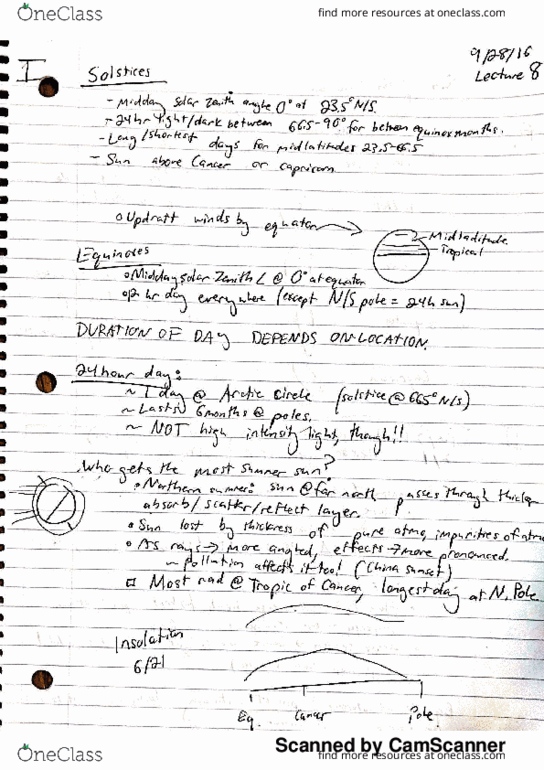 OneClass
find more resources at oneclass.com
9/28/16
Lecture 8
I
Solstices
- Midday solar zenith angle 0° at 23.5° N/S.
- 24hr light/dark between 66.5-90° for between equinox months.
- Long/shortest days for midlatitudes 23.5-66.5
- Sun above Cancer or capricorn
o Updraft winds by equator
Midladitude
Tropical
Equinoxes
o Midday solar Zenith ∠ @ 0° at equator
o 12 hr day everywhere (except N/S pole = 24h sun)
DURATION OF DAY DEPENDS ON LOCATION.
24 hour day:
~ 1 day @ Arctic Circle (solstice @ 66.5° N/S)
~ Lasts 6 months @ poles.
~ NOT high intensity light, though!!
Who gets the most summer sun?
• Northern summer: sun @ far north passes through thicker
absorb/scatter/reflect layer.
• Sun lost by thickness of pure atmo, impurities of atmo
• As rays → more angled, effects → more pronounced.
~ pollution affects it too! (China sunset)
□ Most rad @ Tropic of Cancer, longest day at N. Pole
Insolation
6/21
Eq. Cancer Pole
Scanned by CamScanner
OneClass
find more resources at oneclass.com